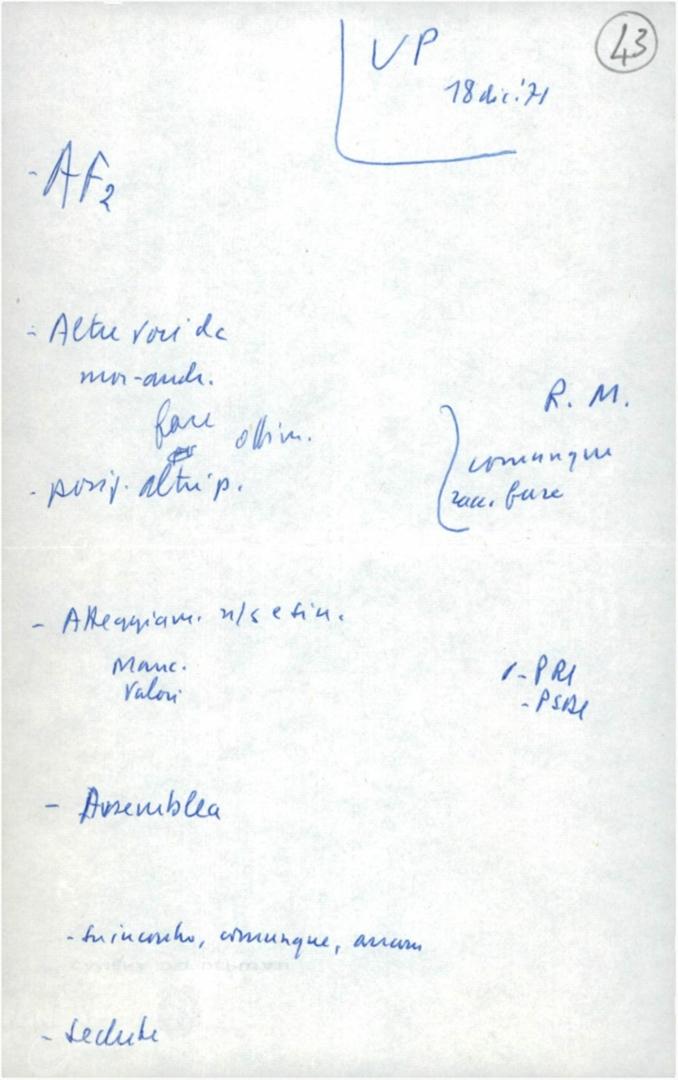 43
UP
18 dic. '71
- AF2
- Altre voci dc
mor-andr.
fare
- posiz. altri p.
R. M.
comunque
racc. base
- Atteggiam. n/s e sin.
Manc.
Valori
- PRI
- PSDI
- Assemblea
- comunque, ancora
- Sedute